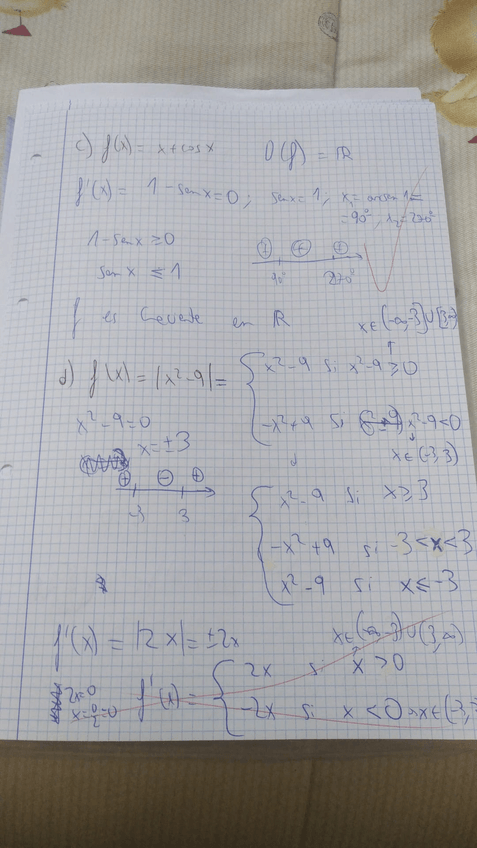 c) f(x) = x + cos x D(f) = ℝ
f'(x) = 1 - sen x = 0 ; sen x = 1, x₁ = arcsen 1 =
= 90° ; x₂ = 270°
1 - sen x ≥ 0
sen x ≤ 1
+ + +
90° 270°
f es creciente en ℝ
x ∈ (-∞, -3] ∪ [3, ∞)
d) f(x) = |x² - 9| = { x² - 9 si x² - 9 ≥ 0
-x² + 9 si x² - 9 < 0
x ∈ (-3, 3)
x² - 9 = 0
x = ±3
+ - +
-3 3
{ x² - 9 si x ≥ 3
-x² + 9 si -3 < x < 3
x² - 9 si x ≤ -3
f'(x) = |2x| = ±2x
x ∈ (-∞, -3) ∪ (3, ∞)
2x = 0
x = 0/2 = 0
f'(x) = { 2x si x > 0
-2x si x < 0 x ∈ (-3,